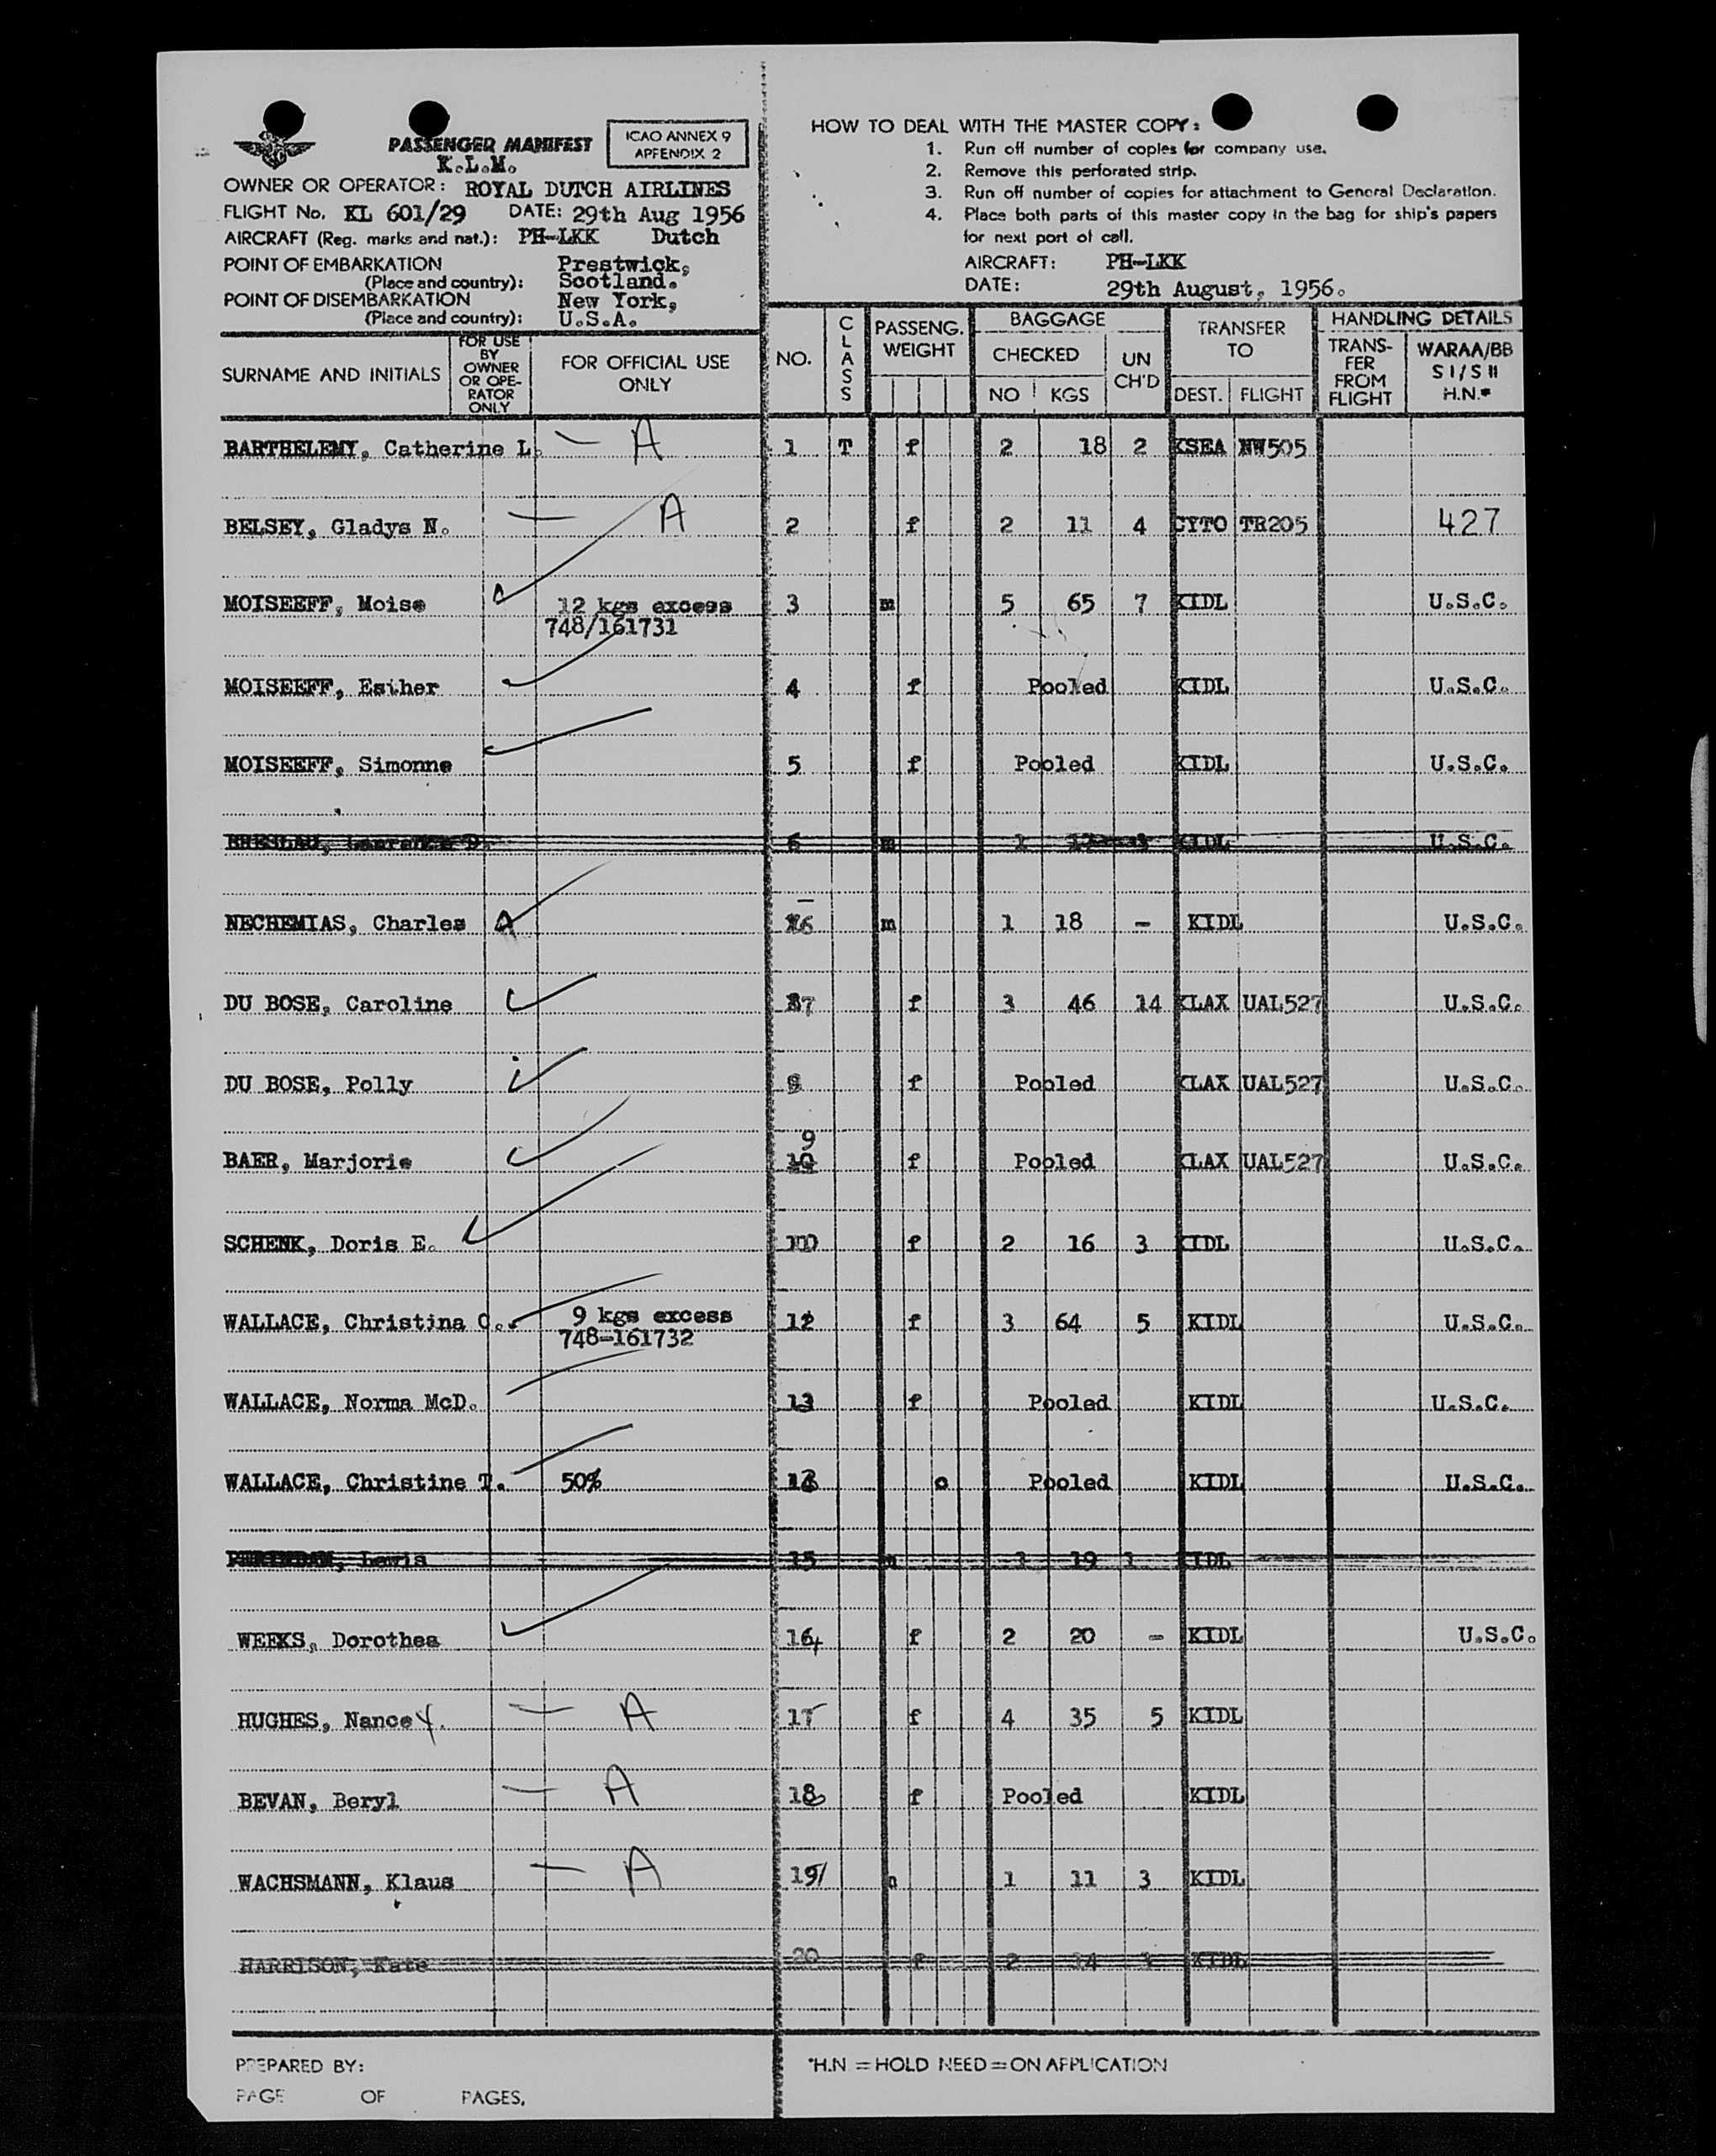 PASSENGER MANIFEST
ICAO ANNEX 9
APPENDIX 2
K.L.M.
OWNER OR OPERATOR: ROYAL DUTCH AIRLINES
FLIGHT No. KL 601/29 DATE: 29th Aug 1956
AIRCRAFT (Reg. marks and nat.): PH-LKK Dutch
POINT OF EMBARKATION Prestwick,
(Place and country): Scotland.
POINT OF DISEMBARKATION New York,
(Place and country): U.S.A.
HOW TO DEAL WITH THE MASTER COPY:
1. Run off number of copies for company use.
2. Remove this perforated strip.
3. Run off number of copies for attachment to General Declaration.
4. Place both parts of this master copy in the bag for ship's papers
for next port of call.
AIRCRAFT: PH-LKK
DATE: 29th August, 1956.
SURNAME AND INITIALS
FOR USE
BY
OWNER
OR OPE-
RATOR
ONLY
FOR OFFICIAL USE
ONLY
NO.
CLASS
PASSENG.
WEIGHT
BAGGAGE
CHECKED
NO KGS
UN
CH'D
TRANSFER
TO
DEST. FLIGHT
HANDLING DETAILS
TRANS-
FER
FROM
FLIGHT
WARAA/BB
S I/S II
H.N.*
BARTHELEMY, Catherine L. — A 1 T f 2 18 2 KSEA NW505
BELSEY, Gladys N. — A 2 f 2 11 4 CYTO TR205 427
MOISEEFF, Moise 12 kgs excess 3 m 5 65 7 KIDL U.S.C.
748/161731
MOISEEFF, Esther 4 f Pooled KIDL U.S.C.
MOISEEFF, Simonne 5 f Pooled KIDL U.S.C.
BRESLAU, 6 m 1 KIDL U.S.C.
NECHEMIAS, Charles A 6 m 1 18 - KIDL U.S.C.
DU BOSE, Caroline 7 f 3 46 14 KLAX UAL527 U.S.C.
DU BOSE, Polly f Pooled KLAX UAL527 U.S.C.
9
BAER, Marjorie 10 f Pooled KLAX UAL527 U.S.C.
SCHENK, Doris E. 10 f 2 16 3 KIDL U.S.C.
WALLACE, Christina C. 9 kgs excess 12 f 3 64 5 KIDL U.S.C.
748-161732
WALLACE, Norma McD. 13 f Pooled KIDL U.S.C.
WALLACE, Christine T. 50% 13 c Pooled KIDL U.S.C.
Lewis 15 m 19 KIDL
WEEKS, Dorothea 16 f 2 20 - KIDL U.S.C.
HUGHES, Nancey. — A 17 f 4 35 5 KIDL
BEVAN, Beryl — A 18 f Pooled KIDL
WACHSMANN, Klaus — A 19 m 1 11 3 KIDL
HARRISON, Kate 20 f 2 14 KIDL
PREPARED BY:
PAGE OF PAGES.
*H.N = HOLD NEED = ON APPLICATION